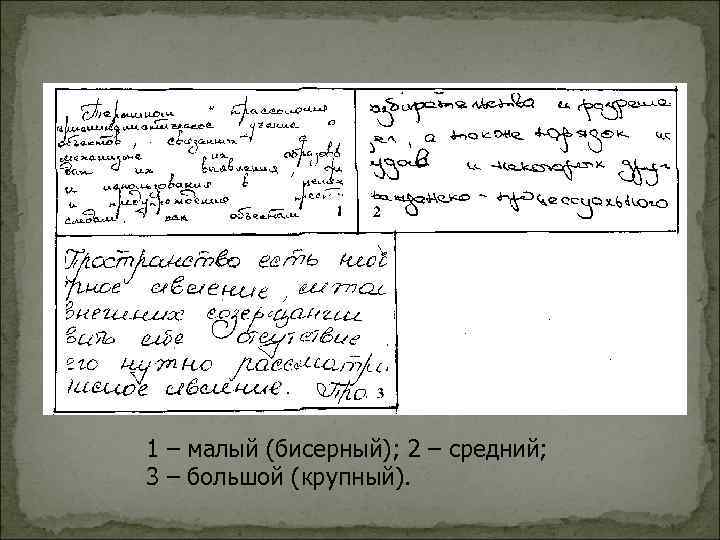 Термином " трассология
криминалистическое учение о
объектов, связанных с
механизме их образов
дах их выявления, фи
и использования в целях
и предупреждения прест
следам, как объектам 1
избирательства и разреше
дел, а также порядок ис
судов и некоторых друг
гражданско - процессуального
2
Пространство есть
рное явление,
внешних созерцаний
вить себе отсутствие
его нужно рассматри
явление. Про. 3
1 – малый (бисерный); 2 – средний;
3 – большой (крупный).